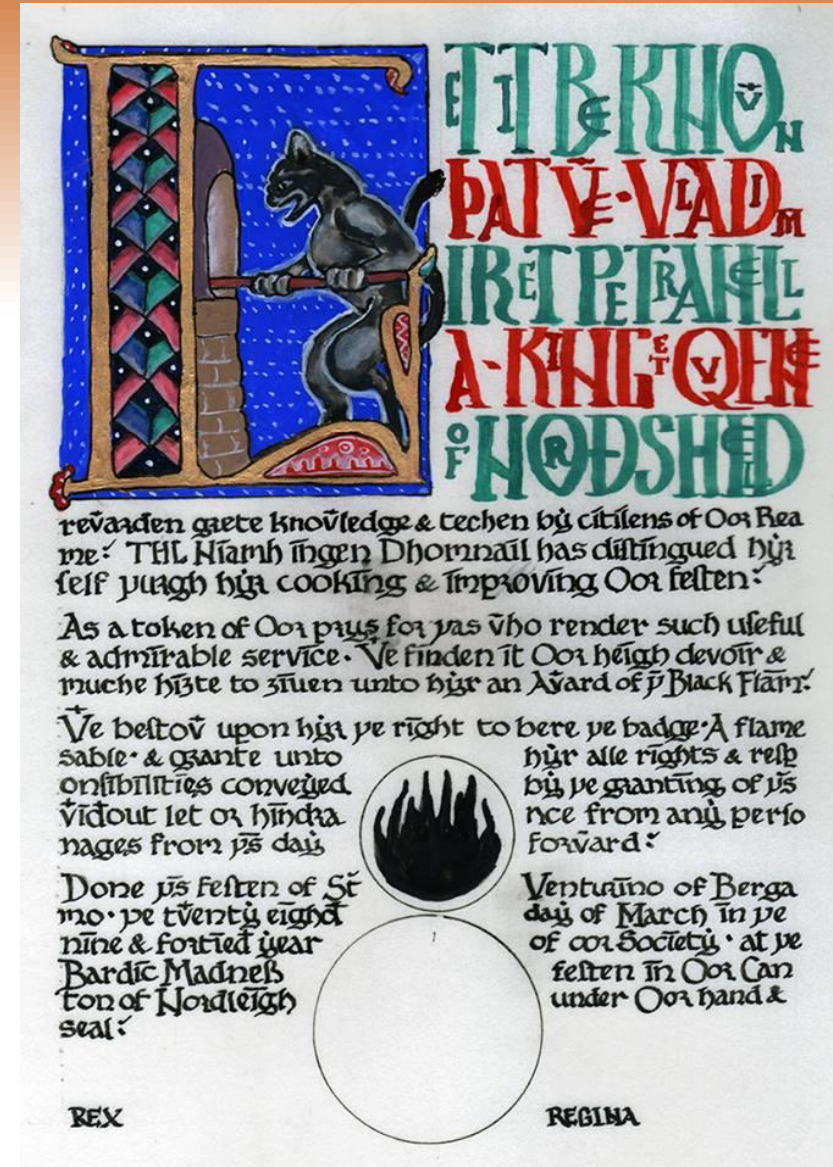 LET IT BE KNOV̇N
ÞAT VE·VLADIM
IR ET PETRANELL
A·KING ET QVEEN
OF NORÐSHELD
rev̇arden grete knov̇ledge & techen bẏ citiſens of Oor Rea
me: THL Niamh ingen Dhomnail has diſtingued hẏr
ſelf þurgh hẏr cooking & improving Oor feſten:
As a token of Oor prys for þas v̇ho render such uſeful
& admirable service· V̇e finden it Oor heigh devoir &
muche hiȝte to ȝiuen unto hẏr an Av̇ard of þͤ Black Flam:
V̇e beſtov̇ upon hẏr þe right to bere þe badge·A flame
sable· & grante unto hẏr alle rights & reſp
onſibilities conveẏed bẏ þe granting of þˢ
v̇iðout let or hindra nce from anẏ perſo
nages from þˢ daẏ forv̇ard:
Done þˢ feſten of St Venturino of Berga
mo· þe tv̇entẏ eighð daẏ of March in þe
nine & fortieð ẏear of oor Societẏ · at þe
Bardic Madneß feſten in Oor Can
ton of Norðleigh under Oor hand &
seal:
REX REGINA